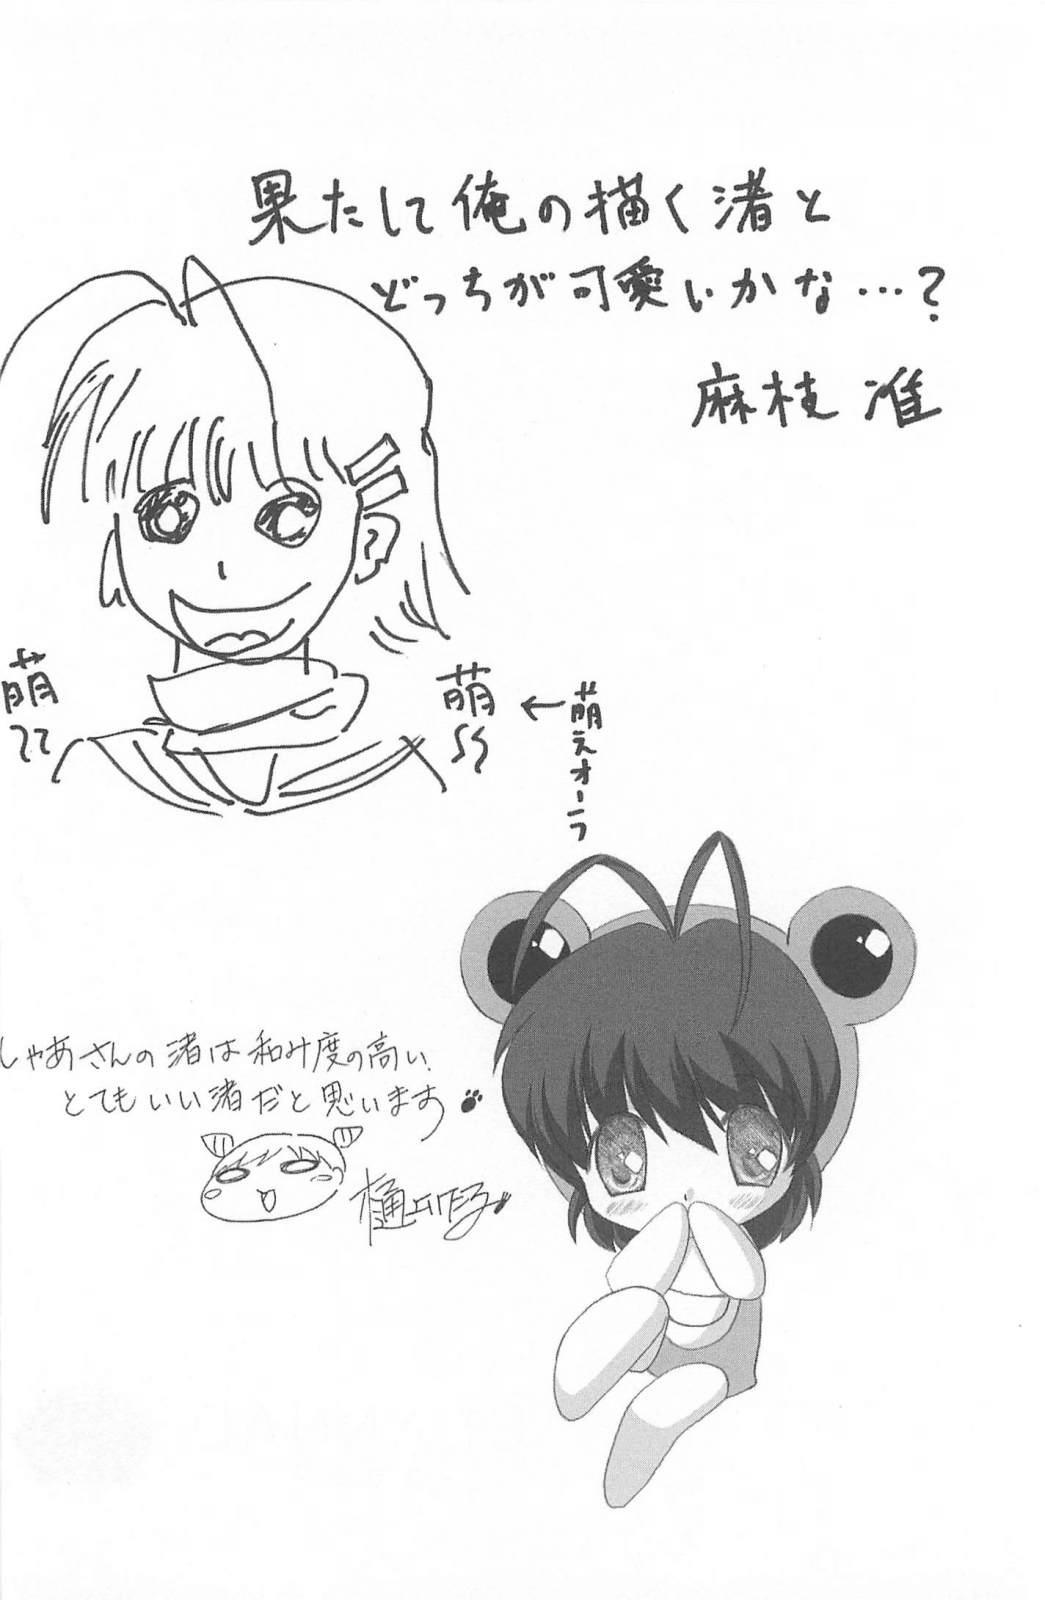 果たして俺の描く渚と
どっちが可愛いかな…?
麻枝 准
萌
萌
萌えオーラ
しゃあさんの渚は和み度の高い、
とてもいい渚だと思います
樋上いたる